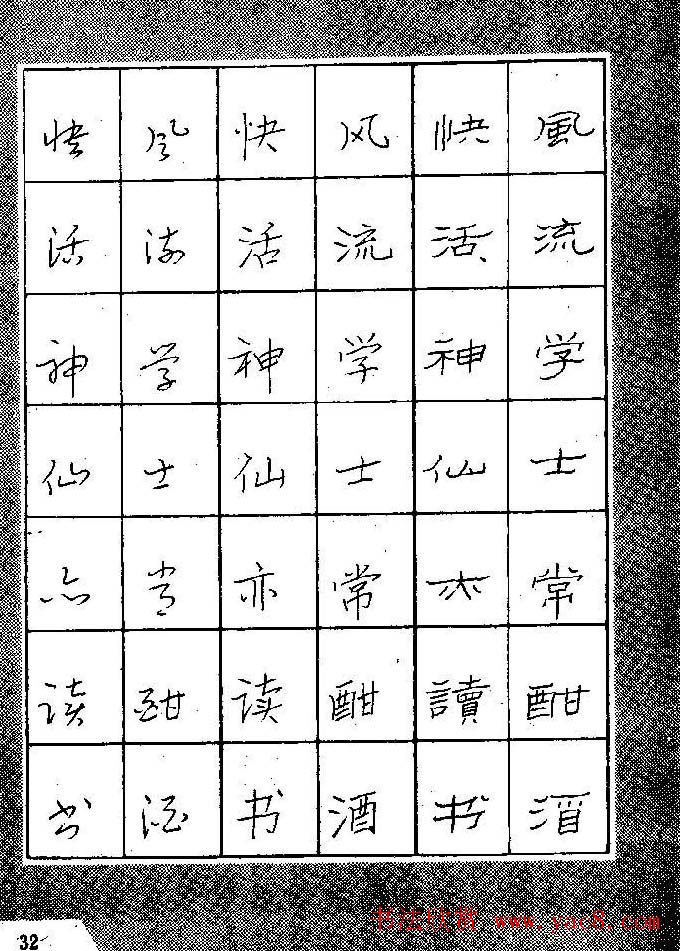 風流学士常酣酒
快活神仙亦讀书
风流学士常酣酒
快活神仙亦读书
风流学士常酣酒
快活神仙亦读书
32
书法欣赏 www.yac8.com